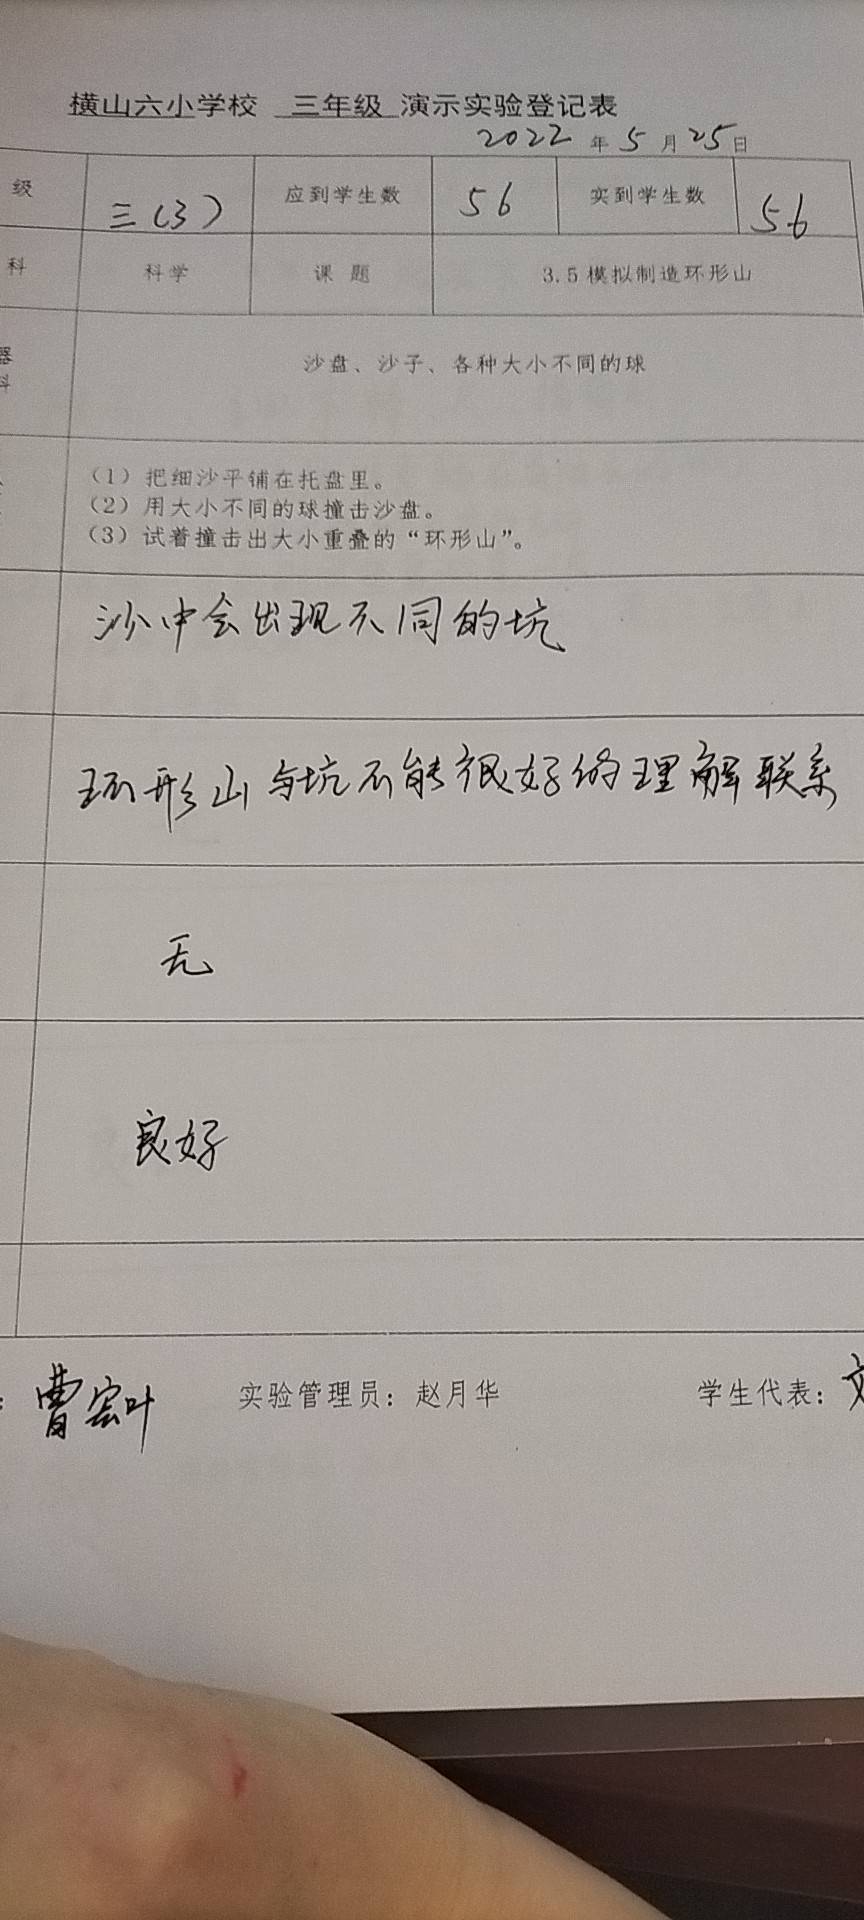 横山六小学校 三年级 演示实验登记表
2022 年 5 月 25 日
级 三(3) 应到学生数 56 实到学生数 56
科 科学 课 题 3.5 模拟制造环形山
器
料 沙盘、沙子、各种大小不同的球
（1）把细沙平铺在托盘里。
（2）用大小不同的球撞击沙盘。
（3）试着撞击出大小重叠的“环形山”。
沙中会出现不同的坑
环形山与坑不能很好的理解联系
无
良好
曹宏叶 实验管理员：赵月华 学生代表：